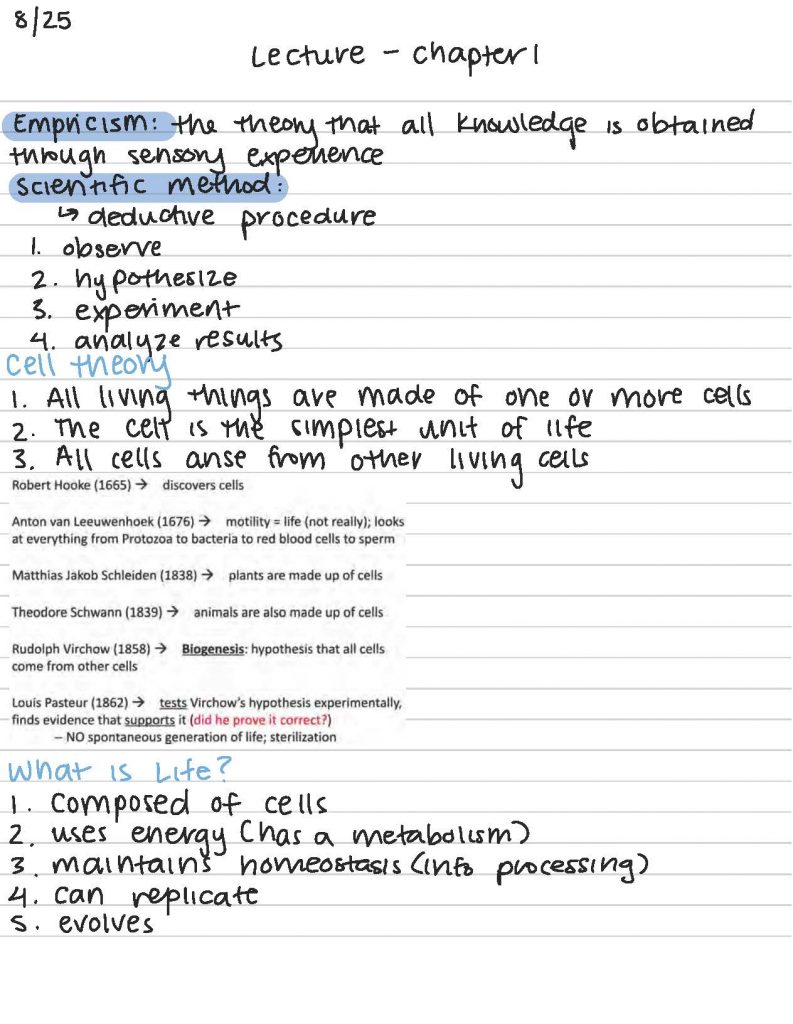 8/25
Lecture - chapter 1
Empricism: the theory that all knowledge is obtained
through sensory experience
scientific method:
↳ deductive procedure
1. observe
2. hypothesize
3. experiment
4. analyze results
Cell theory
1. All living things are made of one or more cells
2. The cell is the simplest unit of life
3. All cells arise from other living cells
Robert Hooke (1665) → discovers cells
Anton van Leeuwenhoek (1676) → motility = life (not really); looks
at everything from Protozoa to bacteria to red blood cells to sperm
Matthias Jakob Schleiden (1838) → plants are made up of cells
Theodore Schwann (1839) → animals are also made up of cells
Rudolph Virchow (1858) → Biogenesis: hypothesis that all cells
come from other cells
Louis Pasteur (1862) → tests Virchow's hypothesis experimentally,
finds evidence that supports it (did he prove it correct?)
– NO spontaneous generation of life; sterilization
What is Life?
1. Composed of cells
2. uses energy (has a metabolism)
3. maintains homeostasis (info processing)
4. can replicate
5. evolves